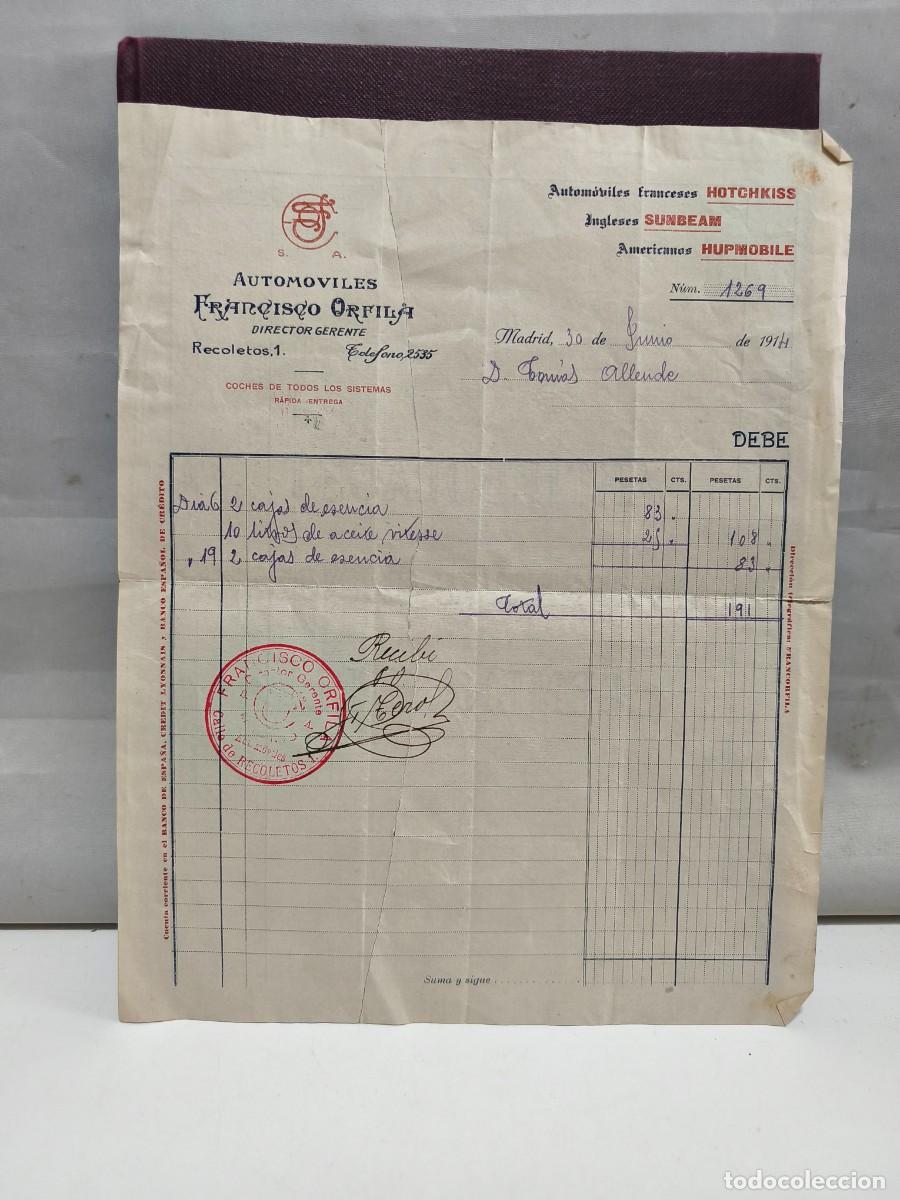 S. A.
AUTOMOVILES
FRANCISCO ORFILA
DIRECTOR GERENTE
Recoletos, 1. Telefono, 2535
COCHES DE TODOS LOS SISTEMAS
RÁPIDA ENTREGA
Automóviles franceses HOTCHKISS
Ingleses SUNBEAM
Americanos HUPMOBILE
Núm. 1269
Madrid, 30 de Junio de 1914
D. Tomás Allende
DEBE
PESETAS CTS. PESETAS CTS.
Dia 6 2 cajas de esencia 83 "
10 litros de aceite vitesse 25 " 108 "
" 19 2 cajas de esencia 83 "
Total 191
Recibí
FRANCISCO ORFILA
Director Gerente
Calle de RECOLETOS 1.
Suma y sigue
Cuenta corriente en el BANCO DE ESPAÑA, CREDIT LYONNAIS y BANCO ESPAÑOL DE CRÉDITO
Dirección telegráfica: FRANCORFILA
todocoleccion